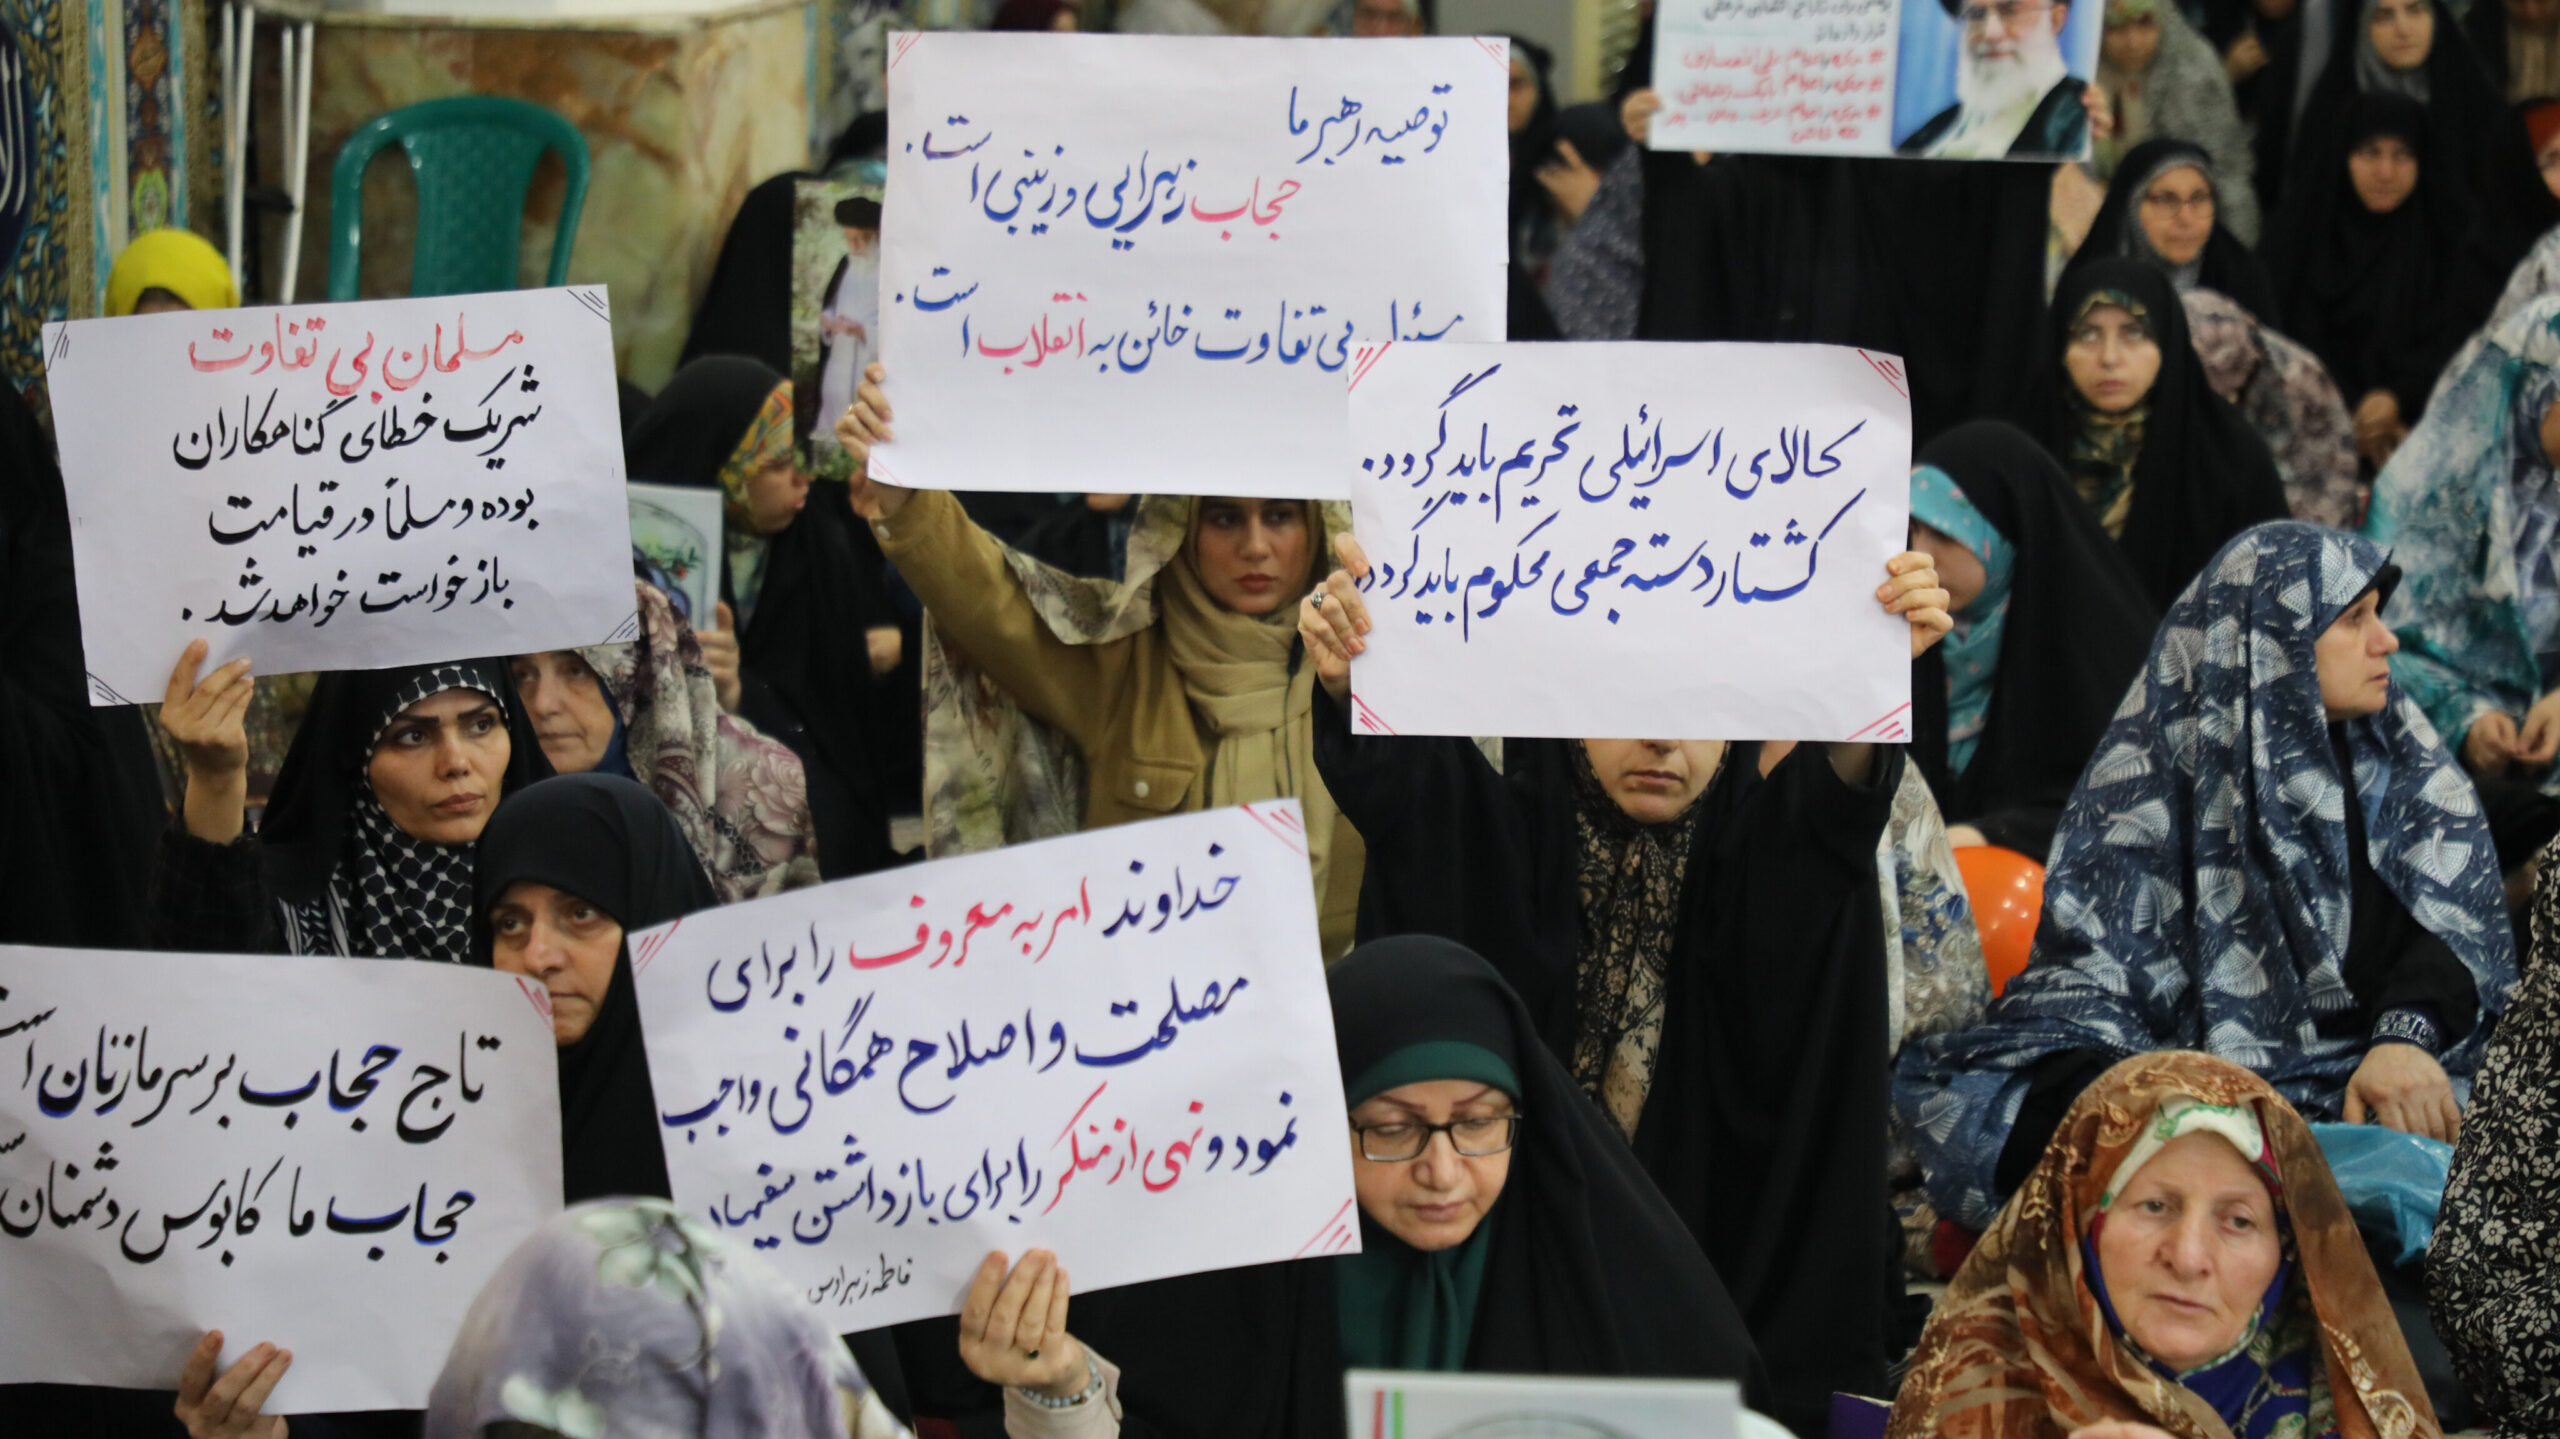 توصیه رهبر ما
حجاب زهرایی و زینبی است.
بی تفاوت خائن به انقلاب است.
مسلمان بی تفاوت
شریک خطای گناهکاران
بوده و مسلماً در قیامت
بازخواست خواهد شد.
کالای اسرائیلی تحریم باید گردد.
کشتار دسته جمعی محکوم باید گردد.
خداوند امر به معروف را برای
مصلحت و اصلاح همگانی واجب
نمود و نهی از منکر را برای بازداشتن
فاطمه زهرا (س
تاج حجاب بر سر ما زنان
حجاب ما کابوس دشمنان